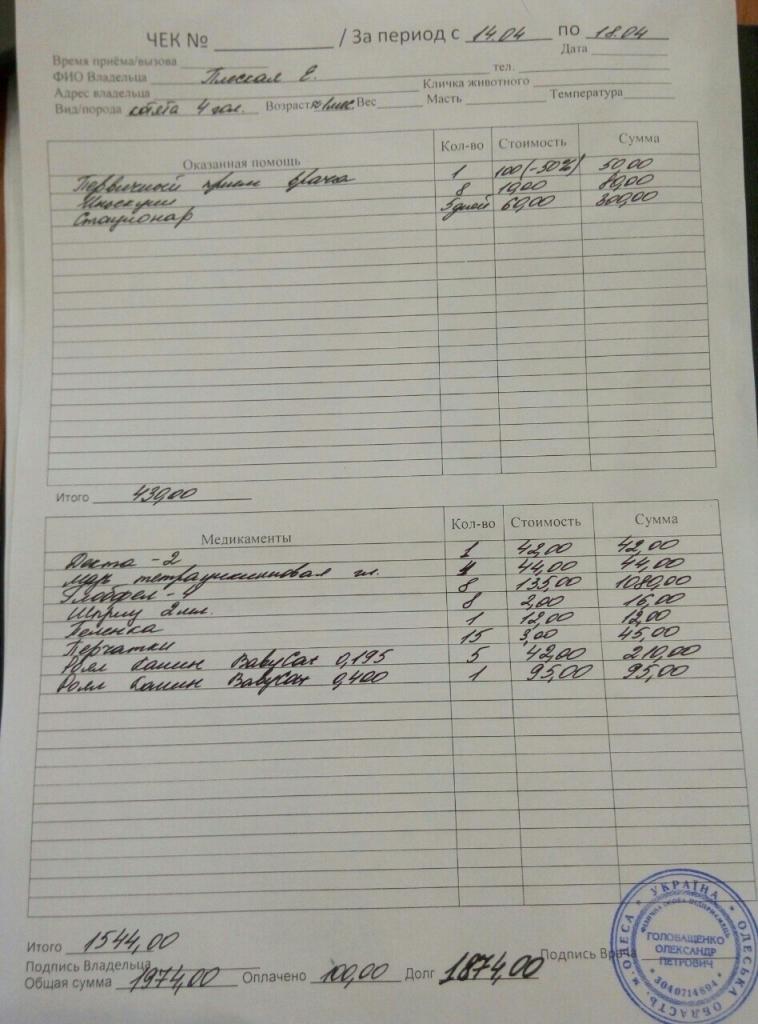 ЧЕК № / За период с 14.04 по 18.04
Время приёма/вызова Дата
ФИО Владельца Плоская Е. тел.
Адрес владельца Кличка животного
Вид/порода котята 4 гол. Возраст ≈1мес. Вес Масть Температура
Оказанная помощь Кол-во Стоимость Сумма
Первичный прием врача 1 100(-50%) 50,00
Инъекции 8 10,00 80,00
Стационар 5дней 60,00 300,00
Итого 430,00
Медикаменты Кол-во Стоимость Сумма
-2 1 42,00 42,00
мазь тетрациклиновая гл. 1 44,00 44,00
Глобфел-4 8 135,00 1080,00
Шприц 2мл. 8 2,00 16,00
Пеленка 1 12,00 12,00
Перчатки 15 3,00 45,00
Роял Канин BabyCat 0,195 5 42,00 210,00
Роял Канин BabyCat 0,400 1 95,00 95,00
Итого 1544,00
Подпись Владельца Подпись Врача
Общая сумма 1974,00 Оплачено 100,00 Долг 1874,00
УКРАЇНА * ОДЕСЬКА ОБЛАСТЬ, м.ОДЕСА
ФІЗИЧНА ОСОБА ПІДПРИЄМЕЦЬ
ГОЛОВАЩЕНКО
ОЛЕКСАНДР
ПЕТРОВИЧ
* 3040714894 *